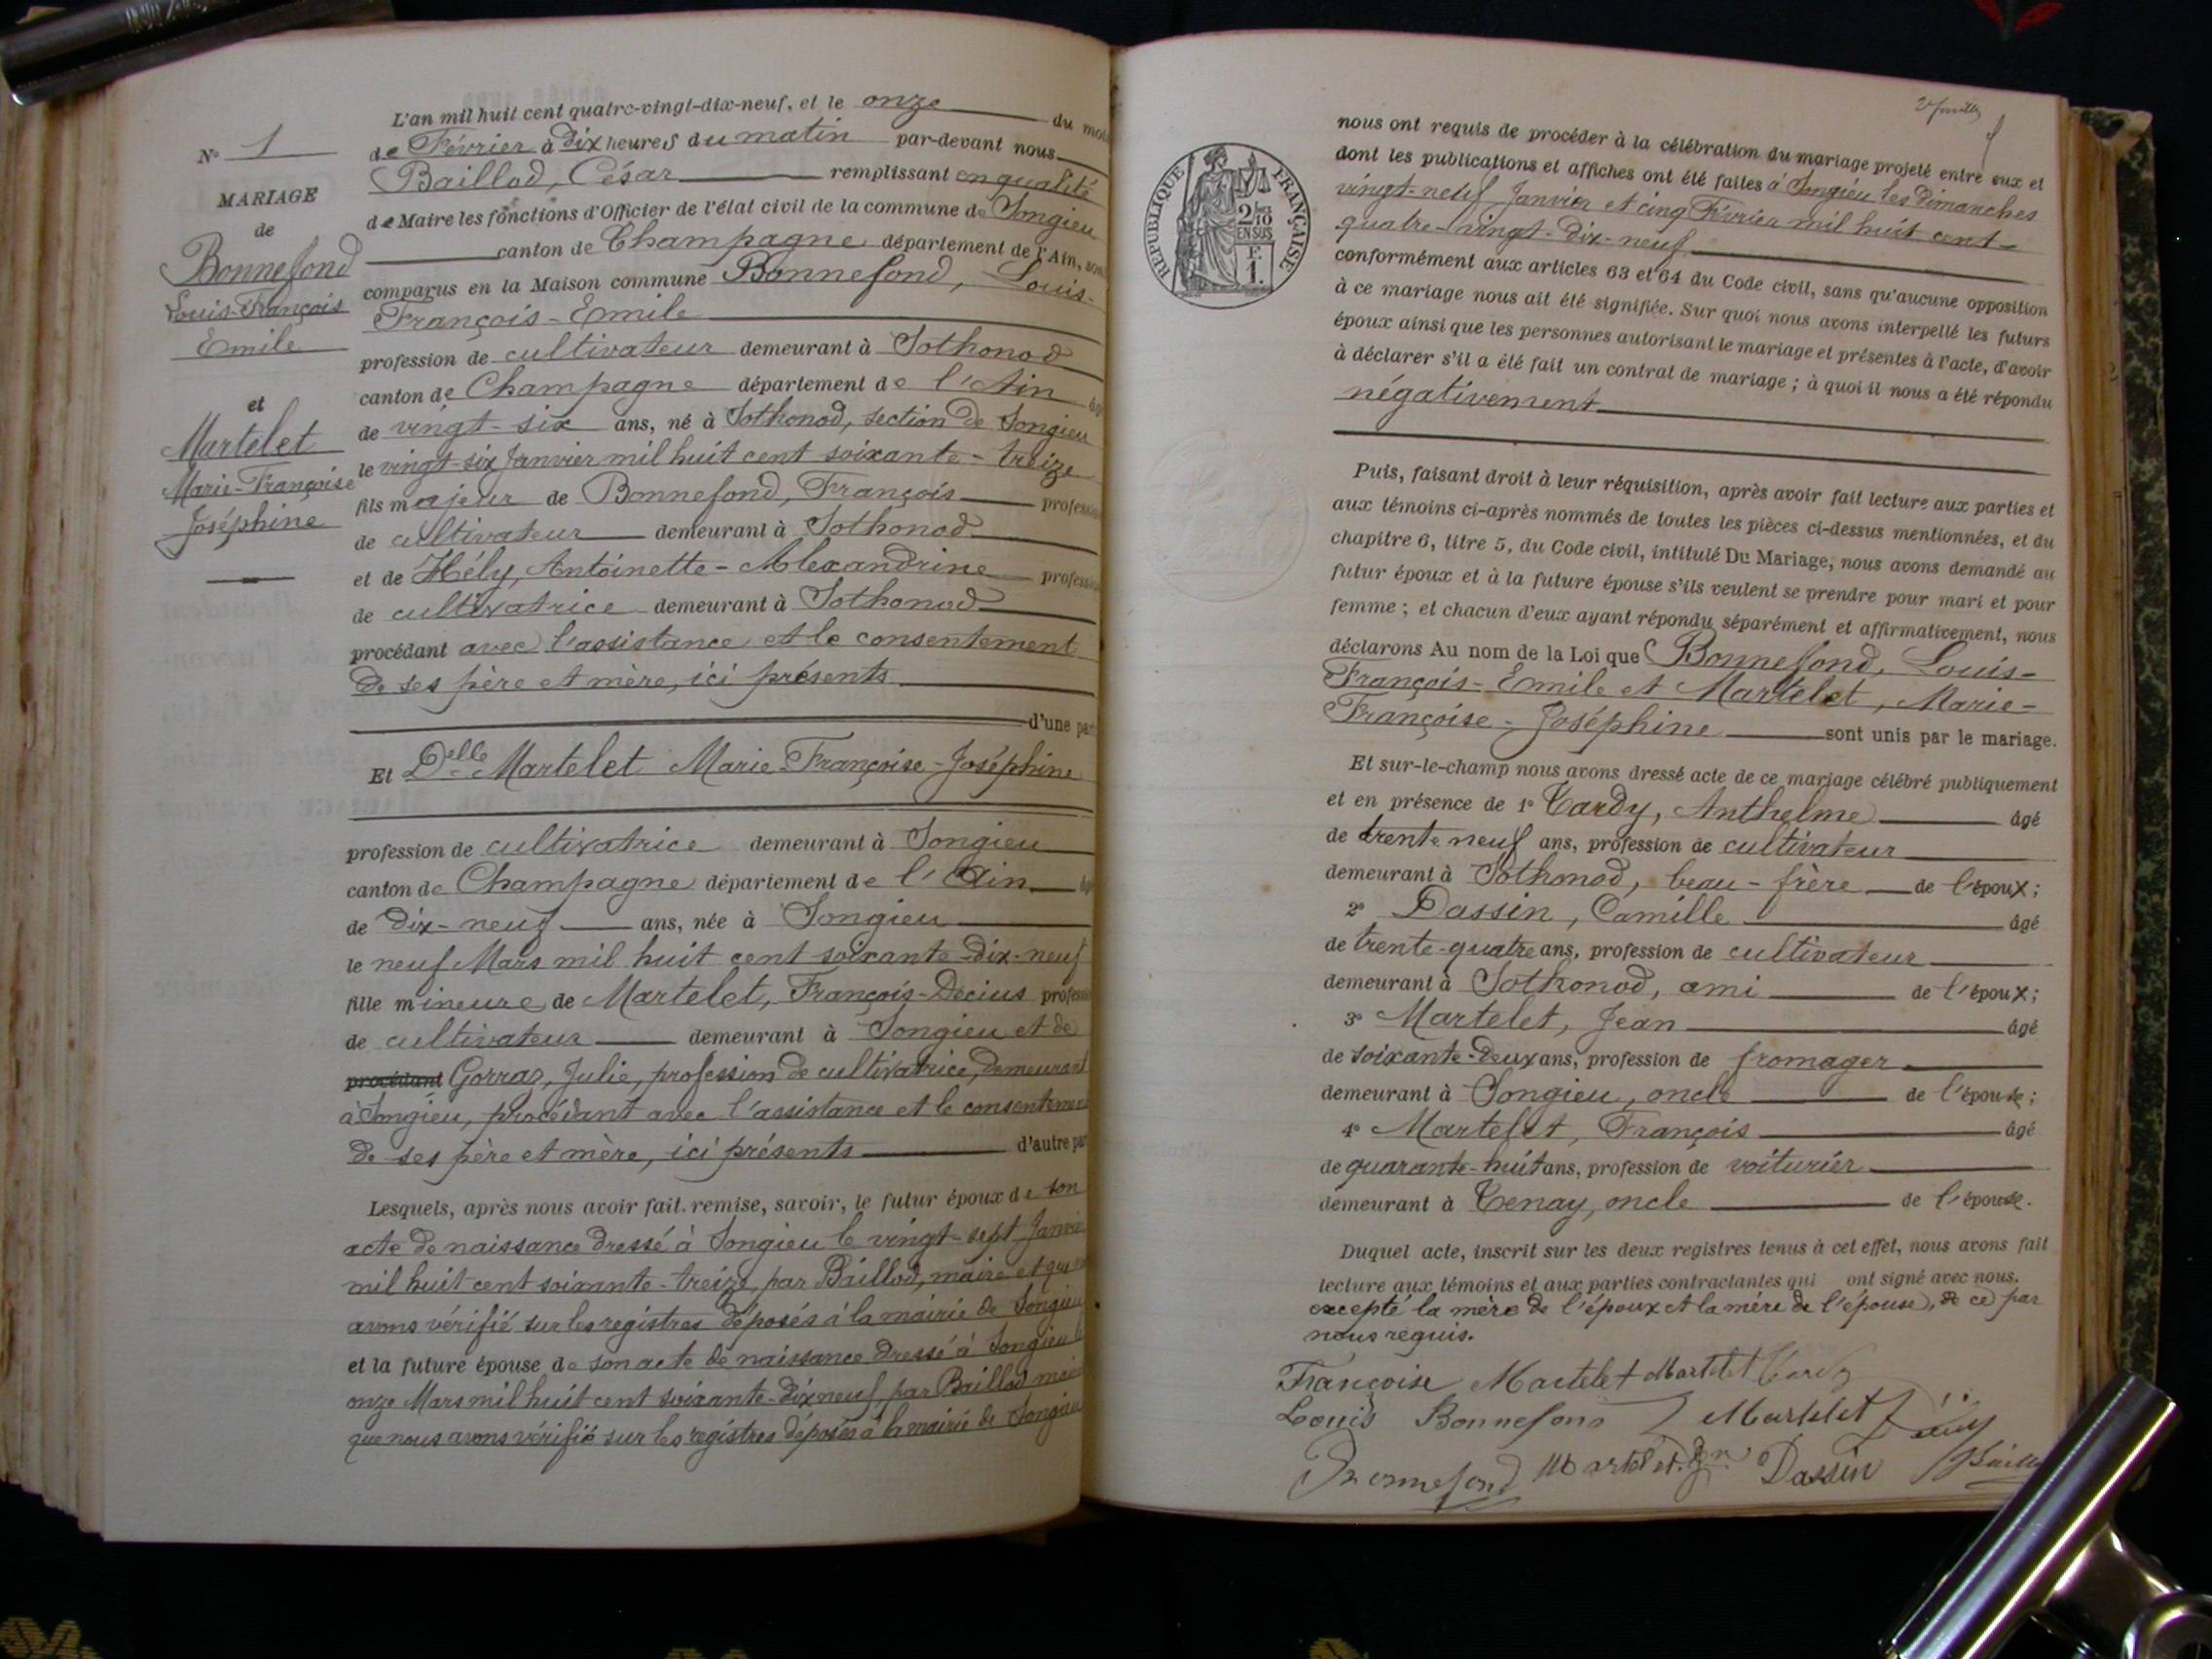 N° 1
MARIAGE
de
Bonnefond
Louis-François
Emile
et
Martelet
Marie-Françoise
Joséphine
L'an mil huit cent quatre-vingt-dix-neuf, et le onze du mois
de Février à dix heures du matin par-devant nous
Baillod, César remplissant en qualité
de Maire les fonctions d'Officier de l'état civil de la commune de Songieu
canton de Champagne département de l'Ain, sont
comparus en la Maison commune Bonnefond, Louis-
François-Emile
profession de cultivateur demeurant à Sothonod
canton de Champagne département de l'Ain âgé
de vingt-six ans, né à Sothonod, section de Songieu
le vingt-six Janvier mil huit cent soixante-treize
fils majeur de Bonnefond, François profession
de cultivateur demeurant à Sothonod
et de Hély, Antoinette-Alexandrine profession
de cultivatrice demeurant à Sothonod
procédant avec l'assistance et le consentement
de ses père et mère, ici présents
d'une part
Et Delle Martelet Marie-Françoise-Joséphine
profession de cultivatrice demeurant à Songieu
canton de Champagne département de l'Ain âgé
de dix-neuf ans, née à Songieu
le neuf Mars mil huit cent soixante-dix-neuf
fille mineure de Martelet, François-Décius profession
de cultivateur demeurant à Songieu et de
procédant Gorraz, Julie, profession de cultivatrice, demeurant
à Songieu, procédant avec l'assistance et le consentement
de ses père et mère, ici présents d'autre part
Lesquels, après nous avoir fait remise, savoir, le futur époux de son
acte de naissance dressé à Songieu le vingt-sept Janvier
mil huit cent soixante-treize, par Baillod, maire et que nous
avons vérifié sur les registres déposés à la mairie de Songieu
et la future épouse de son acte de naissance dressé à Songieu le
onze Mars mil huit cent soixante-dix neuf, par Baillod maire
que nous avons vérifié sur les registres déposés à la mairie de Songieu
2e feuillet
RÉPUBLIQUE FRANÇAISE
2/10 EN SUS
F. 1.
nous ont requis de procéder à la célébration du mariage projeté entre eux et
dont les publications et affiches ont été faites à Songieu les dimanches
vingt-neuf Janvier et cinq Février mil huit cent
quatre-vingt-dix-neuf
conformément aux articles 63 et 64 du Code civil, sans qu'aucune opposition
à ce mariage nous ait été signifiée. Sur quoi nous avons interpellé les futurs
époux ainsi que les personnes autorisant le mariage et présentes à l'acte, d'avoir
à déclarer s'il a été fait un contrat de mariage ; à quoi il nous a été répondu
négativement
Puis, faisant droit à leur réquisition, après avoir fait lecture aux parties et
aux témoins ci-après nommés de toutes les pièces ci-dessus mentionnées, et du
chapitre 6, titre 5, du Code civil, intitulé Du Mariage, nous avons demandé au
futur époux et à la future épouse s'ils veulent se prendre pour mari et pour
femme ; et chacun d'eux ayant répondu séparément et affirmativement, nous
déclarons Au nom de la Loi que Bonnefond, Louis-
François-Emile et Martelet, Marie-
Françoise-Joséphine sont unis par le mariage.
Et sur-le-champ nous avons dressé acte de ce mariage célébré publiquement
et en présence de 1° Tardy, Anthelme âgé
de trente neuf ans, profession de cultivateur
demeurant à Sothonod, beau-frère de l'époux;
2° Dassin, Camille âgé
de trente-quatre ans, profession de cultivateur
demeurant à Sothonod, ami de l'époux;
3° Martelet, Jean âgé
de soixante-deux ans, profession de fromager
demeurant à Songieu, oncle de l'épouse;
4° Martelet, François âgé
de quarante-huit ans, profession de voiturier
demeurant à Tenay, oncle de l'épouse.
Duquel acte, inscrit sur les deux registres tenus à cet effet, nous avons fait
lecture aux témoins et aux parties contractantes qui ont signé avec nous.
excepté la mère de l'époux et la mère de l'épouse, de ce par
nous requis.
Françoise Martelet Martelet Tardy
Louis Bonnefond Martelet
Bonnefond Martelet Dassin Baillod